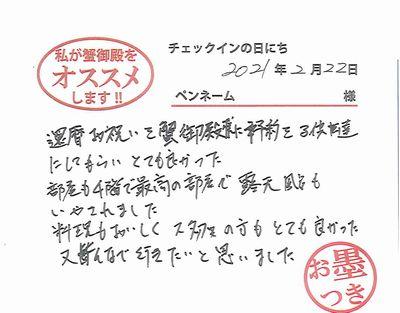 私が蟹御殿を
オススメ
します!!
チェックインの日にち
2021年2月22日
ペンネーム 様
還暦お祝いを蟹御殿様に予約を子供達
にしてもらいとても良かった
部屋も4階で最高の部屋で露天風呂も
いやされました
料理もおいしくスタッフの方もとても良かった
又皆んなで行きたいと思いました
お墨
つき